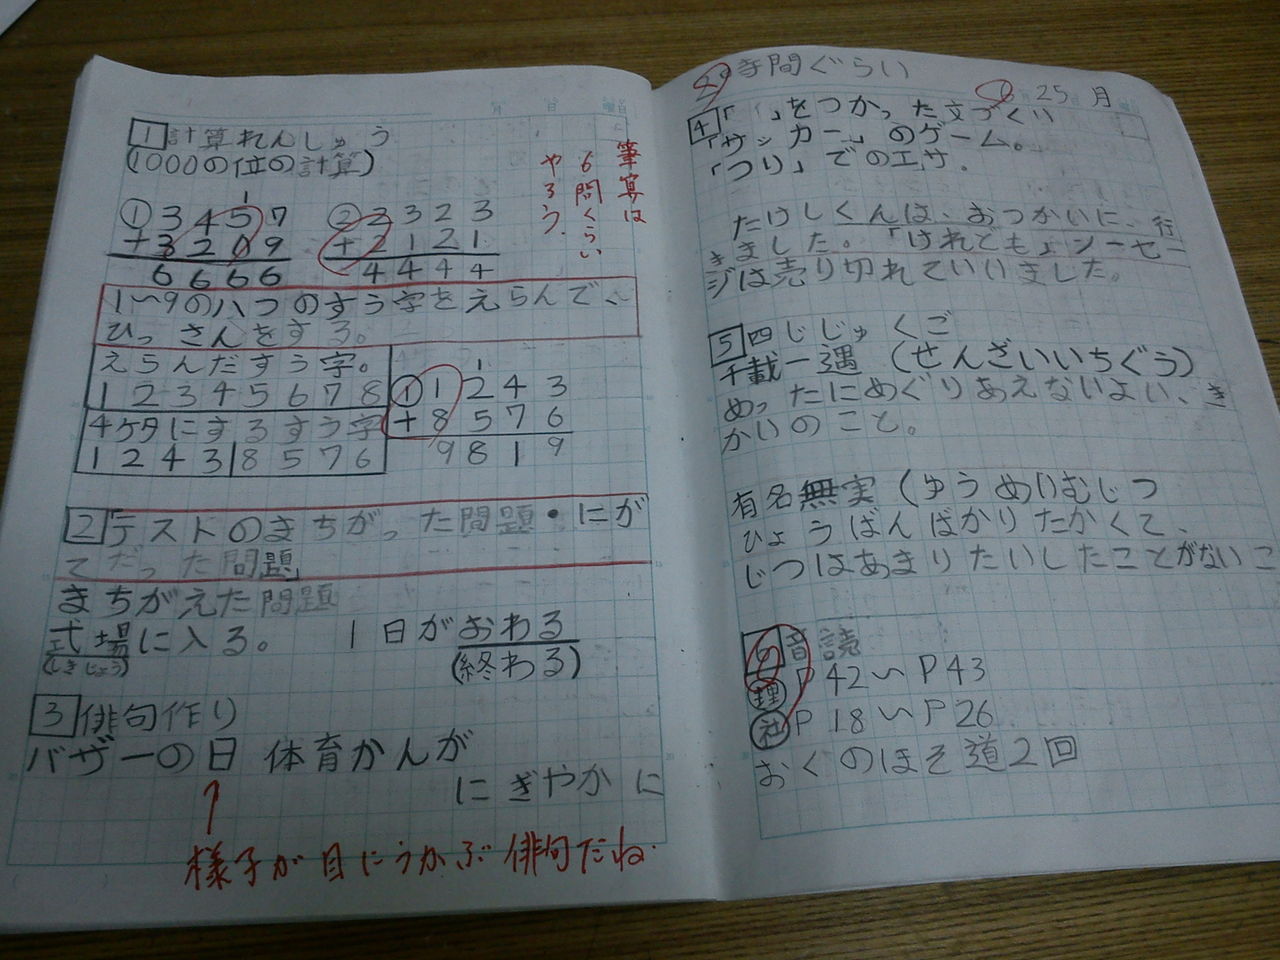 1 計算れんしゅう
(1000の位の計算)
筆算は
6問くらい
やろう.
1
① 3457
+3209
6666
② 2323
+2121
4444
1〜9の八つのすう字をえらんで、
ひっさんをする。
えらんだすう字。
1 2 3 4 5 6 7 8
4ケタにするすう字
1 2 4 3 8 5 7 6
1
① 1243
+8576
9819
2 テストのまちがった問題・にが
てだった問題
まちがえた問題
式場に入る。 1日がおわる
(しきじょう) (終わる)
3 俳句作り
バザーの日 体育かんが
にぎやかに
↑
様子が目にうかぶ俳句だね.
時間ぐらい
25 月
4 「 」をつかった文づくり
「サッカー」のゲーム。
「つり」でのエサ.
たけしくんは、おつかいに、行
きました。「けれども」ソーセー
ジは売り切れていいました。
5 四じじゅくご
千載一遇 (せんざいいちぐう)
めったにめぐりあえないよい、き
かいのこと。
有名無実 (ゆうめいむじつ
ひょうばんばかりたかくて、
じつはあまりたいしたことがないこ
音読
理 P 42〜P43
社 P 18〜P26
おくのほそ道2回